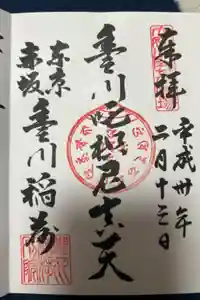 奉拝
平成卅年
二月十三日
豊川吒枳尼真天
東京
赤坂
豊川稲荷